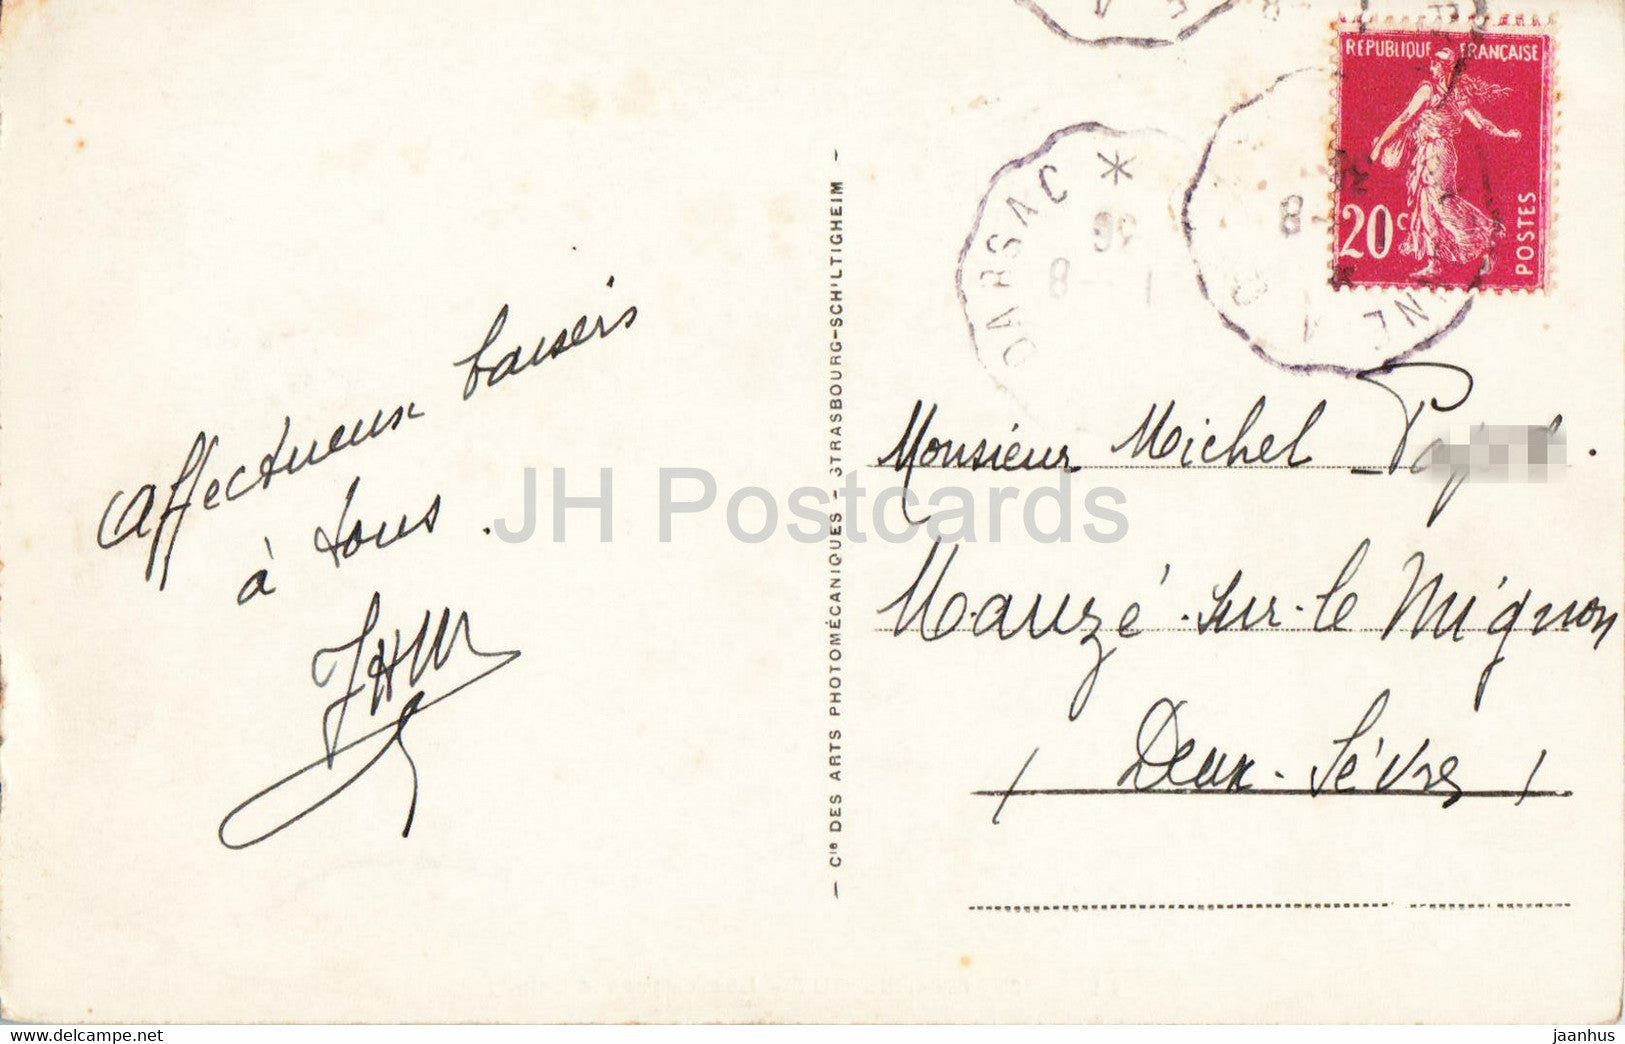 RÉPUBLIQUE FRANÇAISE
20c
POSTES
DARSAC *
36
1 - 8
Affectueux baisers
à tous.
JH Postcards
Cie DES ARTS PHOTOMÉCANIQUES - STRASBOURG-SCHILTIGHEIM
Monsieur Michel
Mauzé-sur-le Mignon
(Deux-Sèvres)
jaanhus